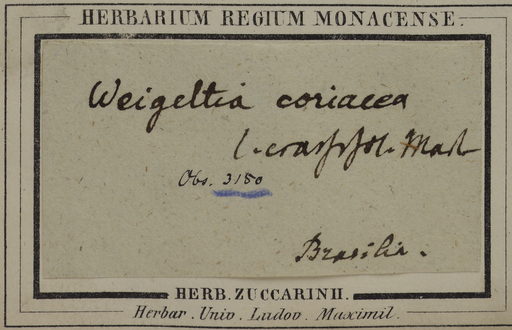 HERBARIUM REGIUM MONACENSE.
Weigeltia coriacea
Mart
Obs. 3180
Brasilia.
HERB. ZUCCARINII.
Herbar. Univ. Ludov. Maximil.